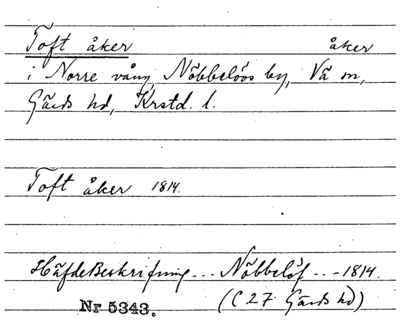 Toft åker åker
i Norre vång, Nöbbelövs by, Vä sn,
Gärds hd, Krstd. l.
Toft åker 1814.
Häfdebeskrifning... Nöbbelöf... 1814.
Nr 5343. (C 27 Gärds hd)